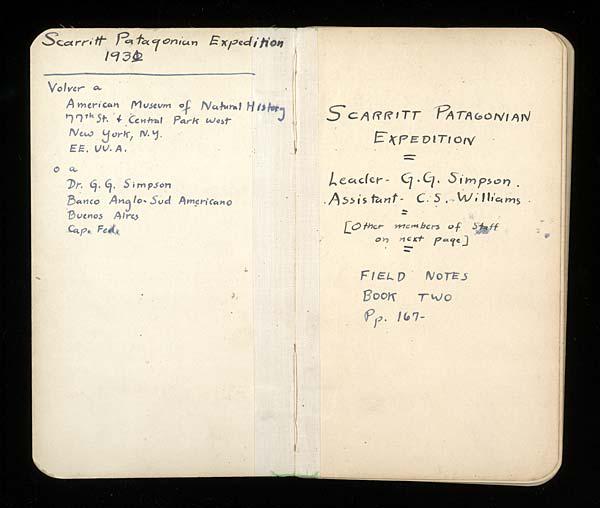 Scarritt Patagonian Expedition
Volver a
American Museum of Natural History
77th St. & Central Park West
New York, N.Y.
EE. UU. A.
o a
Dr. G. G. Simpson
Banco Anglo-Sud Americano
Buenos Aires
Cap. Fed.
SCARRITT PATAGONIAN
EXPEDITION
=
Leader - G.G. Simpson.
Assistant - C.S. Williams
=
[Other members of staff
on next page]
=
FIELD NOTES
BOOK TWO
Pp. 167-